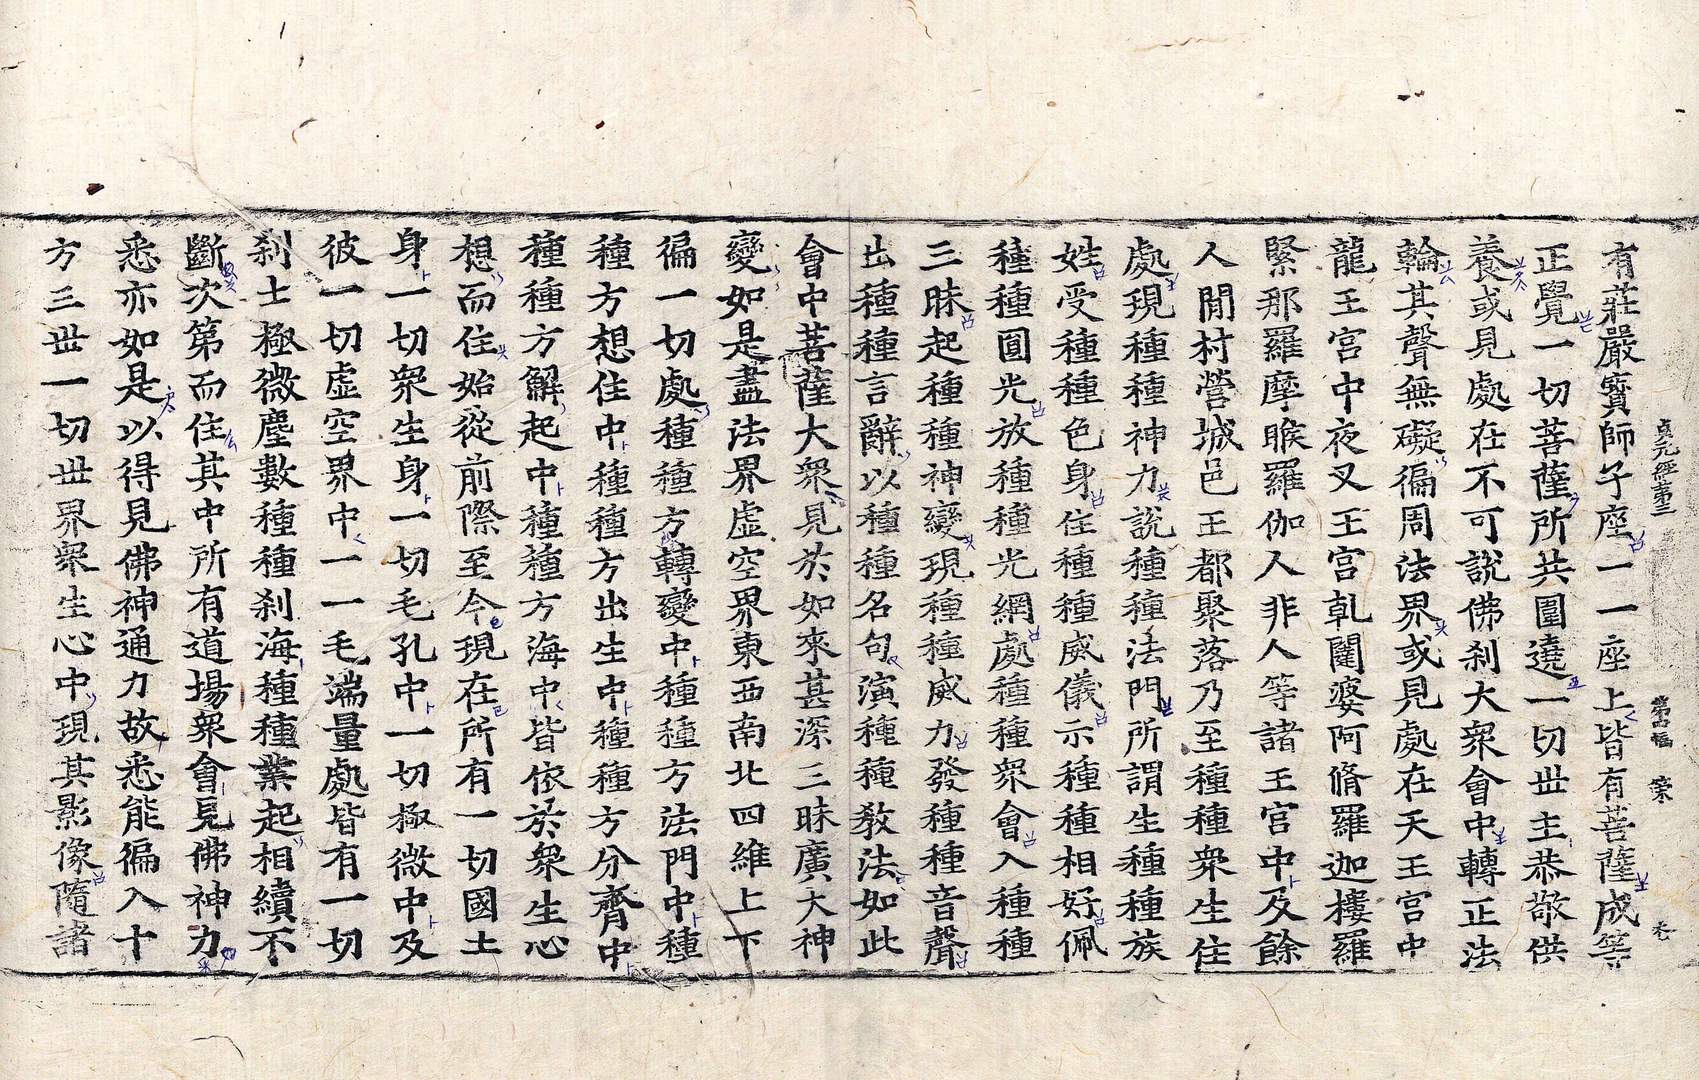 貞元經第三　第四幅　榮
有莊嚴寶師子座一一座上皆有菩薩成等
正覺一切菩薩所共圍遶一切丗主恭敬供
養或見處在不可說佛刹大衆會中轉正法
輪其聲無礙徧周法界或見處在天王宮中
龍王宮中夜叉王宮乹闥婆阿脩羅迦樓羅
緊那羅摩睺羅伽人非人等諸王宮中及餘
人間村營城邑王都聚落乃至種種衆生住
處現種種神力說種種法門所謂生種種族
姓受種種色身住種種威儀示種種相好佩
種種圓光放種種光網處種種衆會入種種
三昧起種種神變現種種威力發種種音聲
出種種言辭以種種名句演種種敎法如此
會中菩薩大衆見於如來甚深三昧廣大神
變如是盡法界虛空界東西南北四維上下
徧一切處種種方轉變中種種方法門中種
種方想住中種種方出生中種種方分齊中
種種方解起中種種方海中皆依於衆生心
想而住始從前際至今現在所有一切國土
身一切衆生身一切毛孔中一切極微中及
彼一切虛空界中一一毛端量處皆有一切
刹土極微塵數種種刹海種種業起相續不
斷次第而住其中所有道場衆會見佛神力
悉亦如是以得見佛神通力故悉能徧入十
方三丗一切丗界衆生心中現其影像隨諸